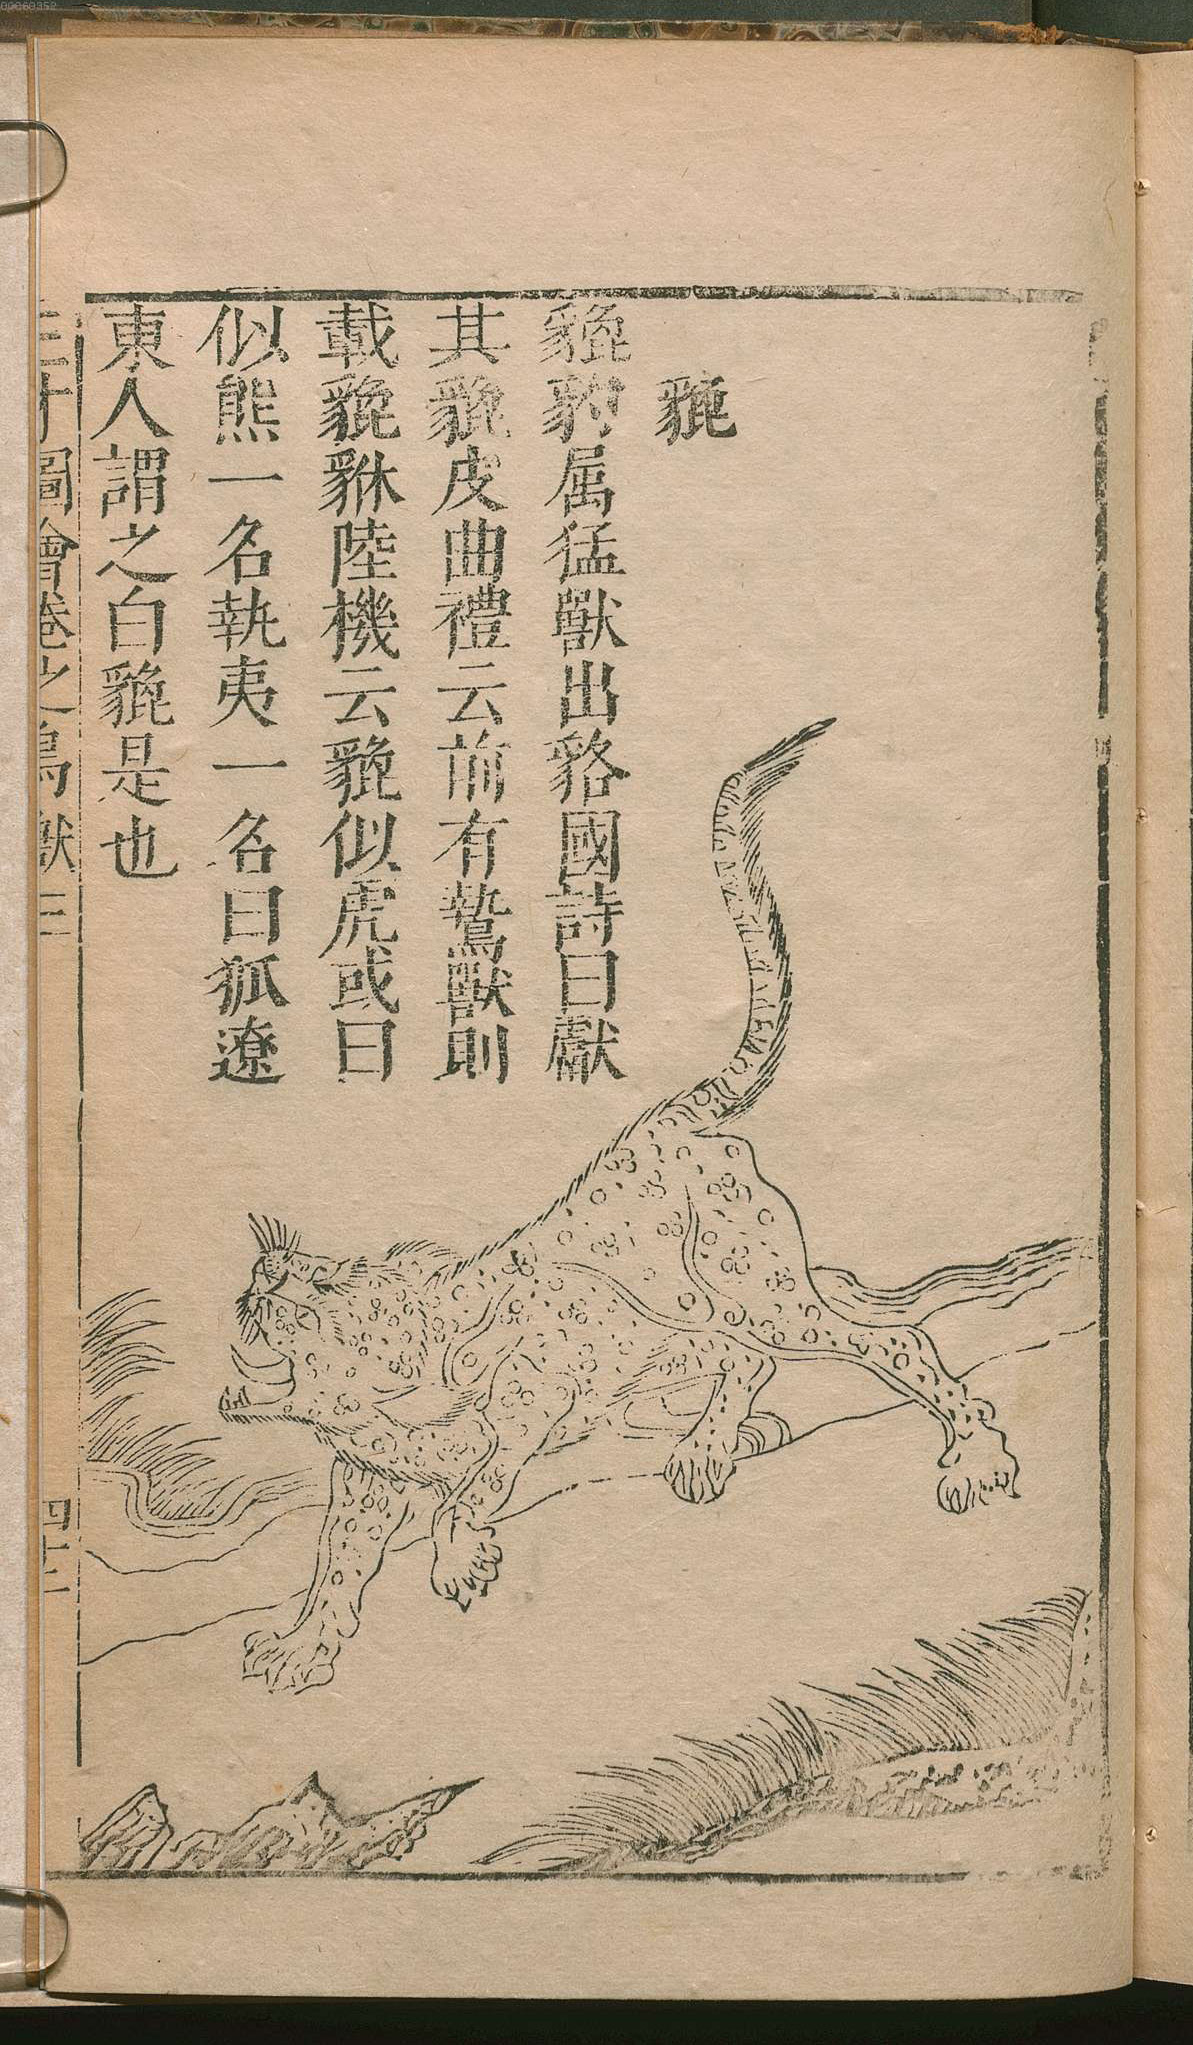 貔
貔豹属猛獸出貉國詩曰獻
其貔皮曲禮云前有鷙獸則
載貔貅陸機云貔似虎或曰
似熊一名執夷一名曰狐遼
東人謂之白貔是也
三才圖會卷之鳥獸三
四十二
00060352